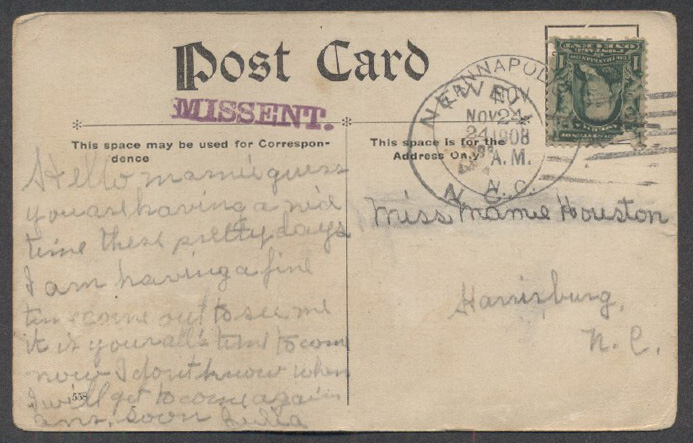 Post Card
MISSENT.
This space may be used for Correspondence
This space is for the
Address Only
KANNAPOLIS
NEWELL
NOV
NOV 24
24 1908
A.M.
N.C.
N.C.
Hello mamie guess
you are having a nice
time these pretty days
I am having a fine
time come out to see me
it is your all's time to come
now I dont know when
I will get to come again
ans. soon Julia
Miss Mamie Houston
Harrisburg,
N.C.
558
1